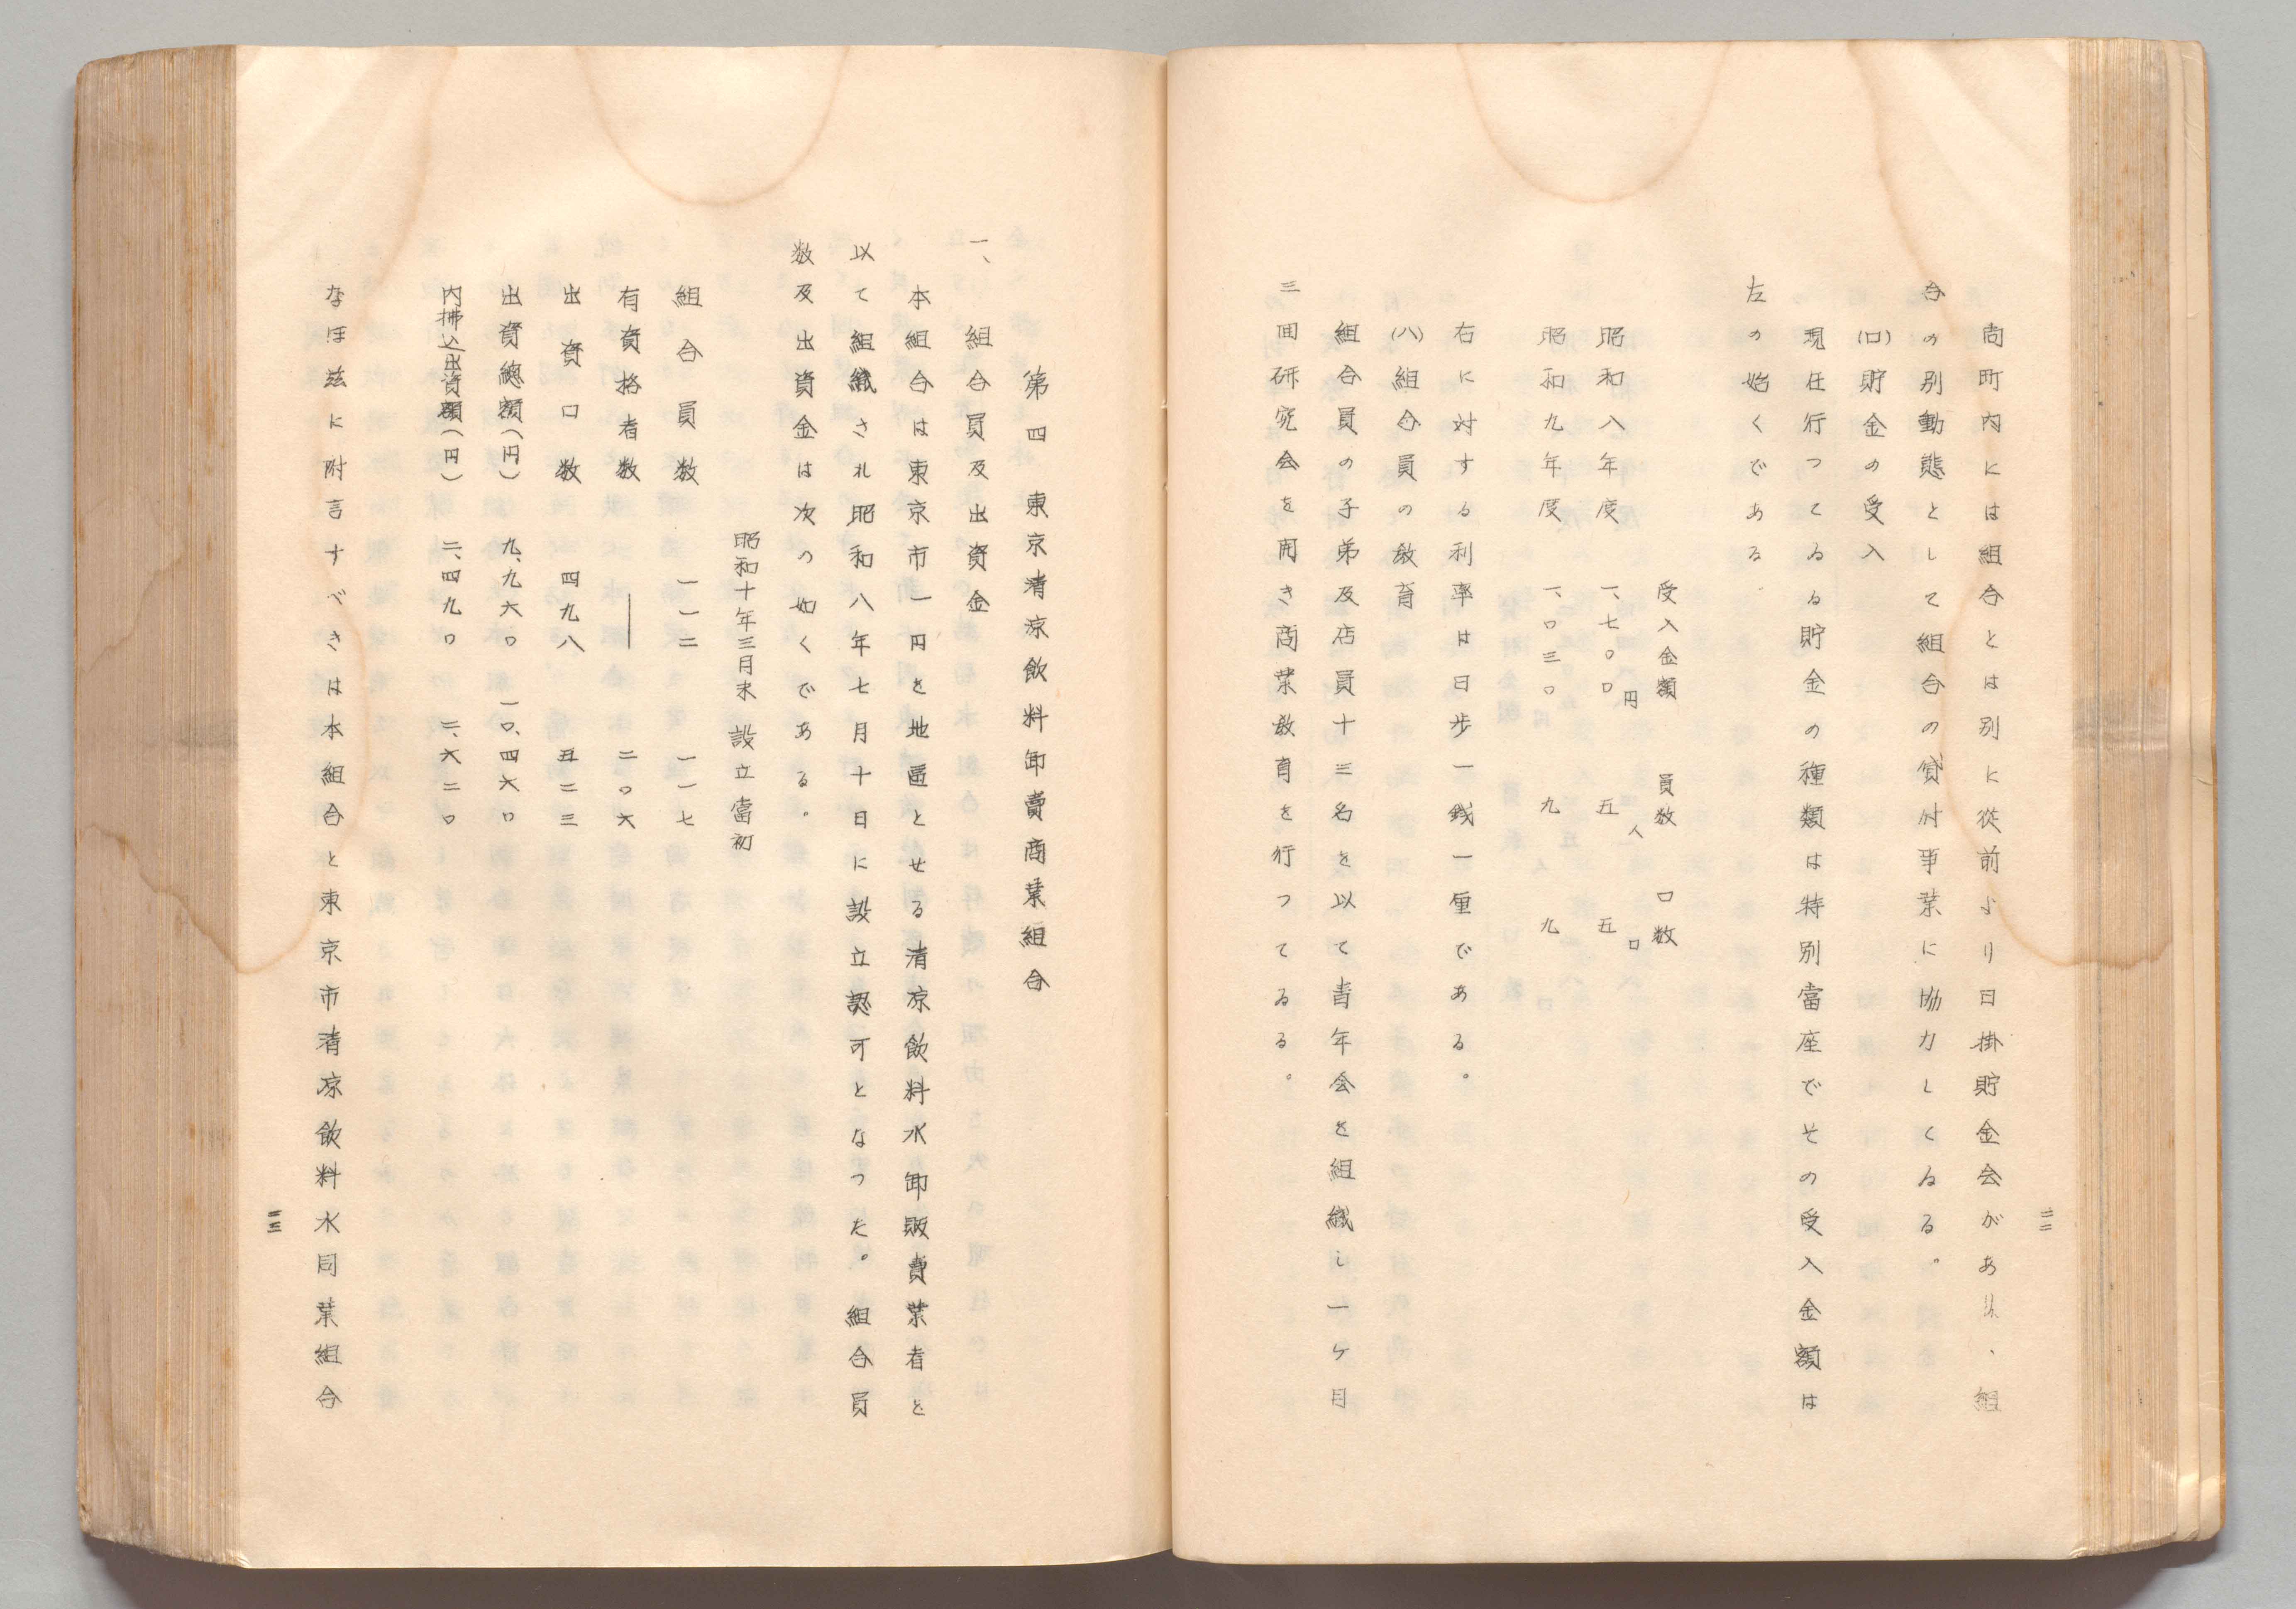 尚町内には組合とは別に從前より日掛貯金会があり、組
合の別動態として組合の貸付事業に協力しくゐる。
(ロ)貯金の受入
現在行つてゐる貯金の種類は特別當座でその受入金額は
左の始くである
受入金額 員数 口数
昭和八年度 一、七〇〇円 五人 五口
昭和九年度 一、〇三〇 九 九
右に対する利率は日歩一銭一厘である。
(八)組合員の教育
組合員の子弟及店員十三名を以て青年会を組織し一ケ月
三回研究会を開き商業教育を行つてゐる。
二二
第四 東京清涼飲料卸賣商業組合
一、組合員及出資金
本組合は東京市一円を地區とせる清凉飲料水卸販賣業者を
以て組織され昭和八年七月十日に設立認可となつた。組合員
数及出資金は次の如くである。
昭和十年三月末 設立當初
組合員数 一一二 一一七
有資格者数 ― 二〇六
出資口数 四九八 五二三
出資總額(円) 九、九六〇 一〇、四六〇
内拂込出資額(円) 二、四九〇 二、六二〇
なほ茲に附言すべきは本組合と東京市清凉飲料水同業組合
二三